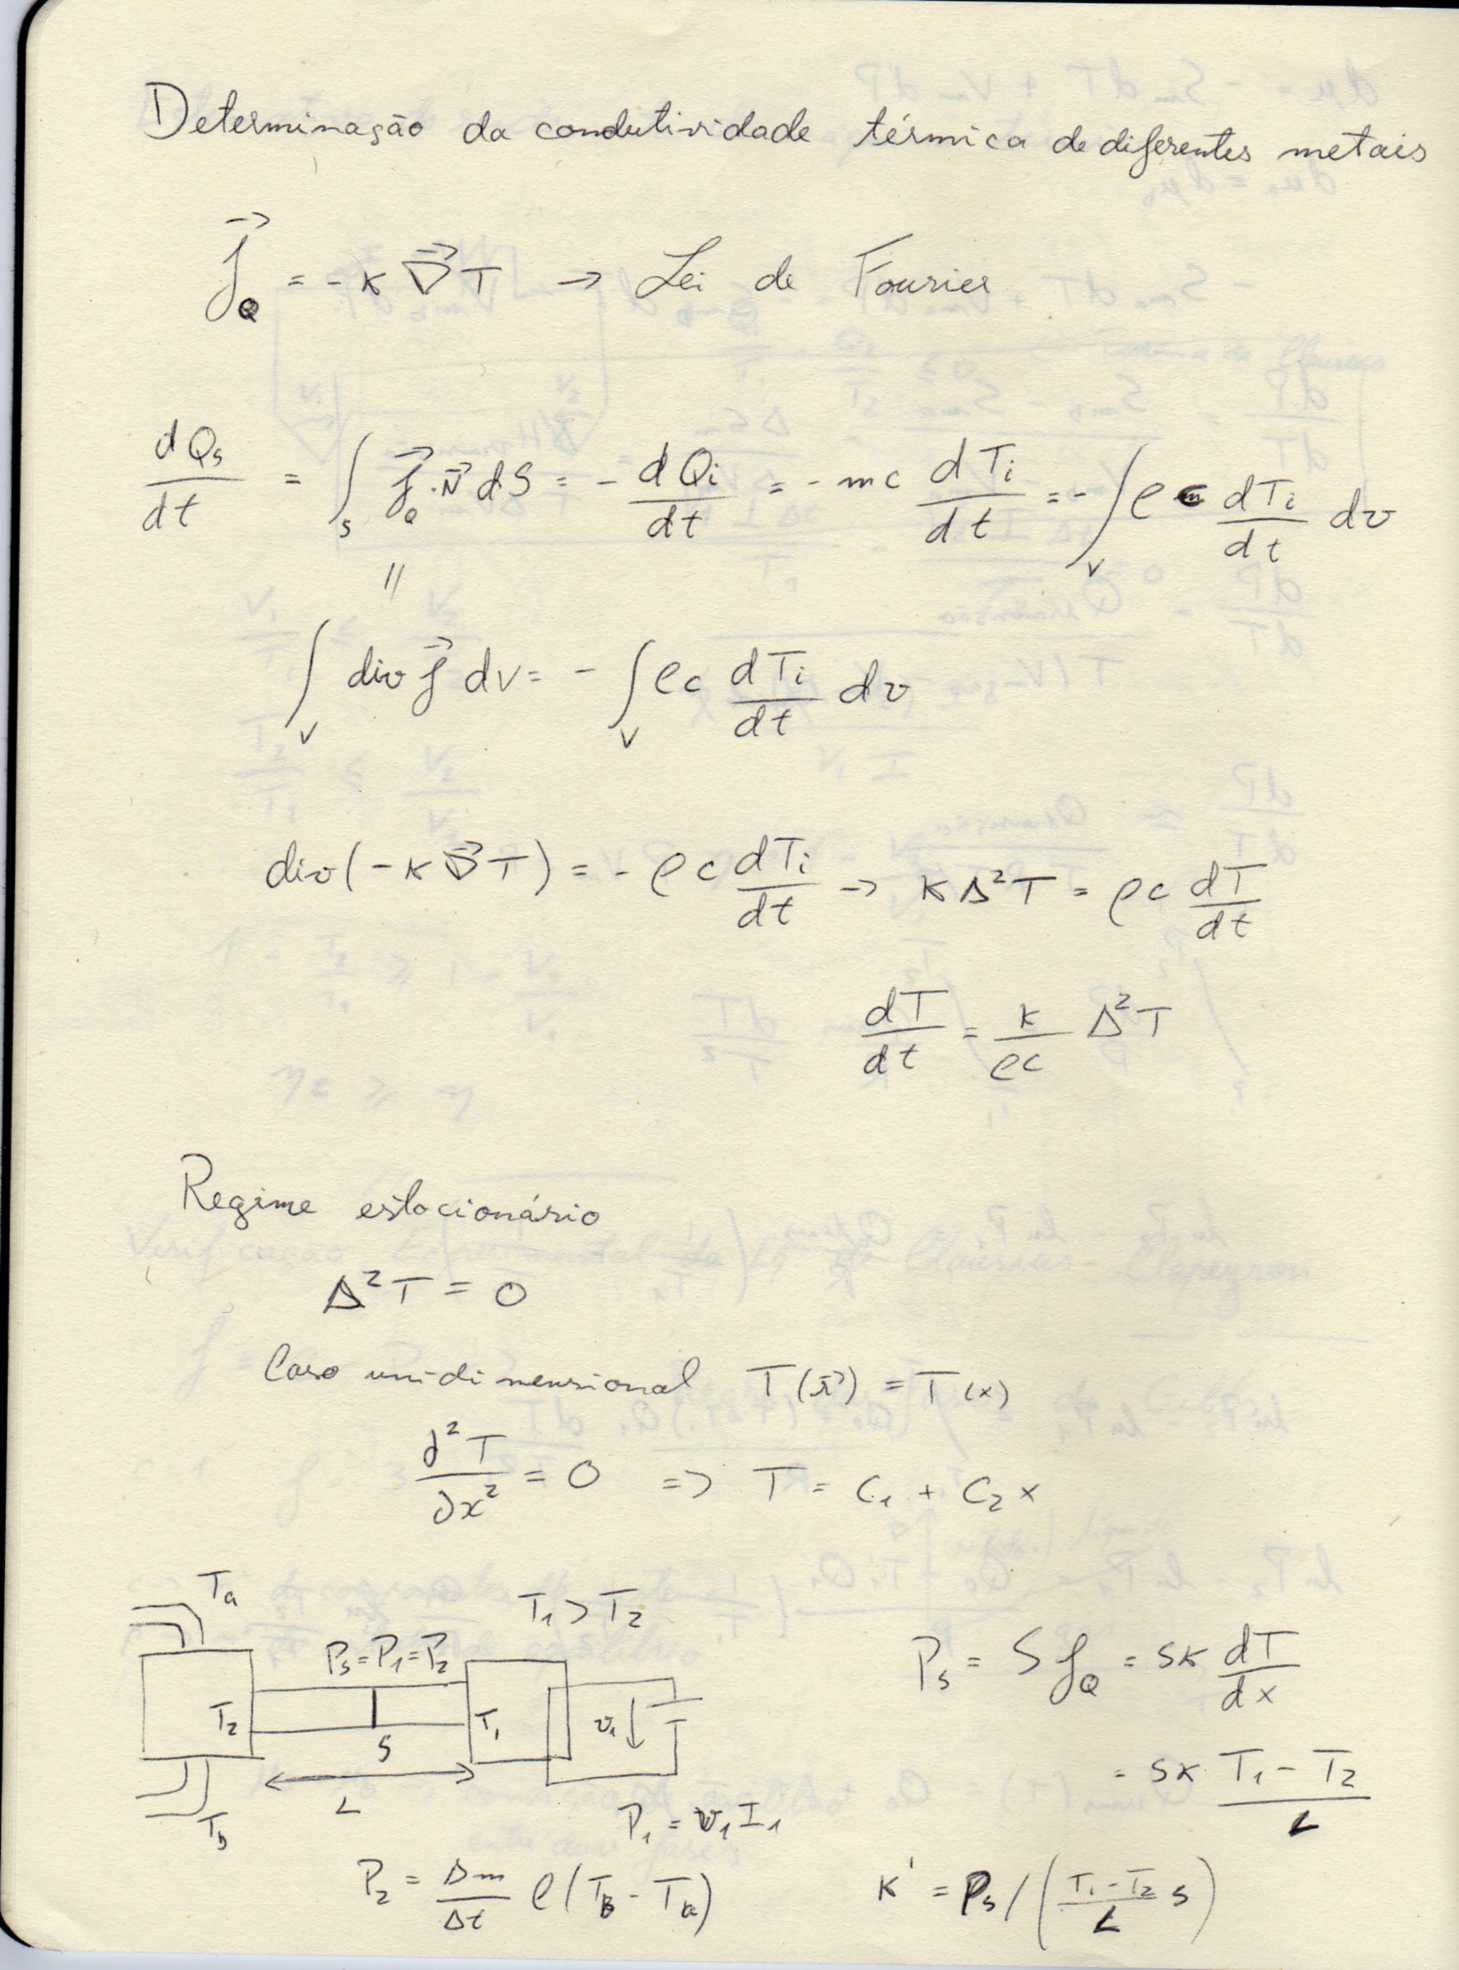 Determinação da condutividade térmica de diferentes metais
J⃗_Q = -κ ∇⃗T → Lei de Fourier
dQs/dt = ∫_S J⃗_Q · N⃗ dS = - dQi/dt = - mc dTi/dt = - ∫_V ρ c dTi/dt dv
||
∫_V div J⃗ dv = - ∫_V ρc dTi/dt dv
div(-κ ∇⃗T) = - ρc dTi/dt → κ Δ²T = ρc dT/dt
dT/dt = κ/ρc Δ²T
Regime estacionário
Δ²T = 0
Caso unidimensional T(r⃗) = T(x)
∂²T/∂x² = 0 => T = C₁ + C₂x
Ta
T₁ > T₂
Ps = P₁ = P₂
T₂
S
T₁
v₁
L
Tb
Ps = S J_Q = Sκ dT/dx
= Sκ (T₁ - T₂)/L
P₁ = v₁I₁
P₂ = Δm/Δt ρ(TB - Ta)
κ' = Ps/((T₁-T₂)/L S)